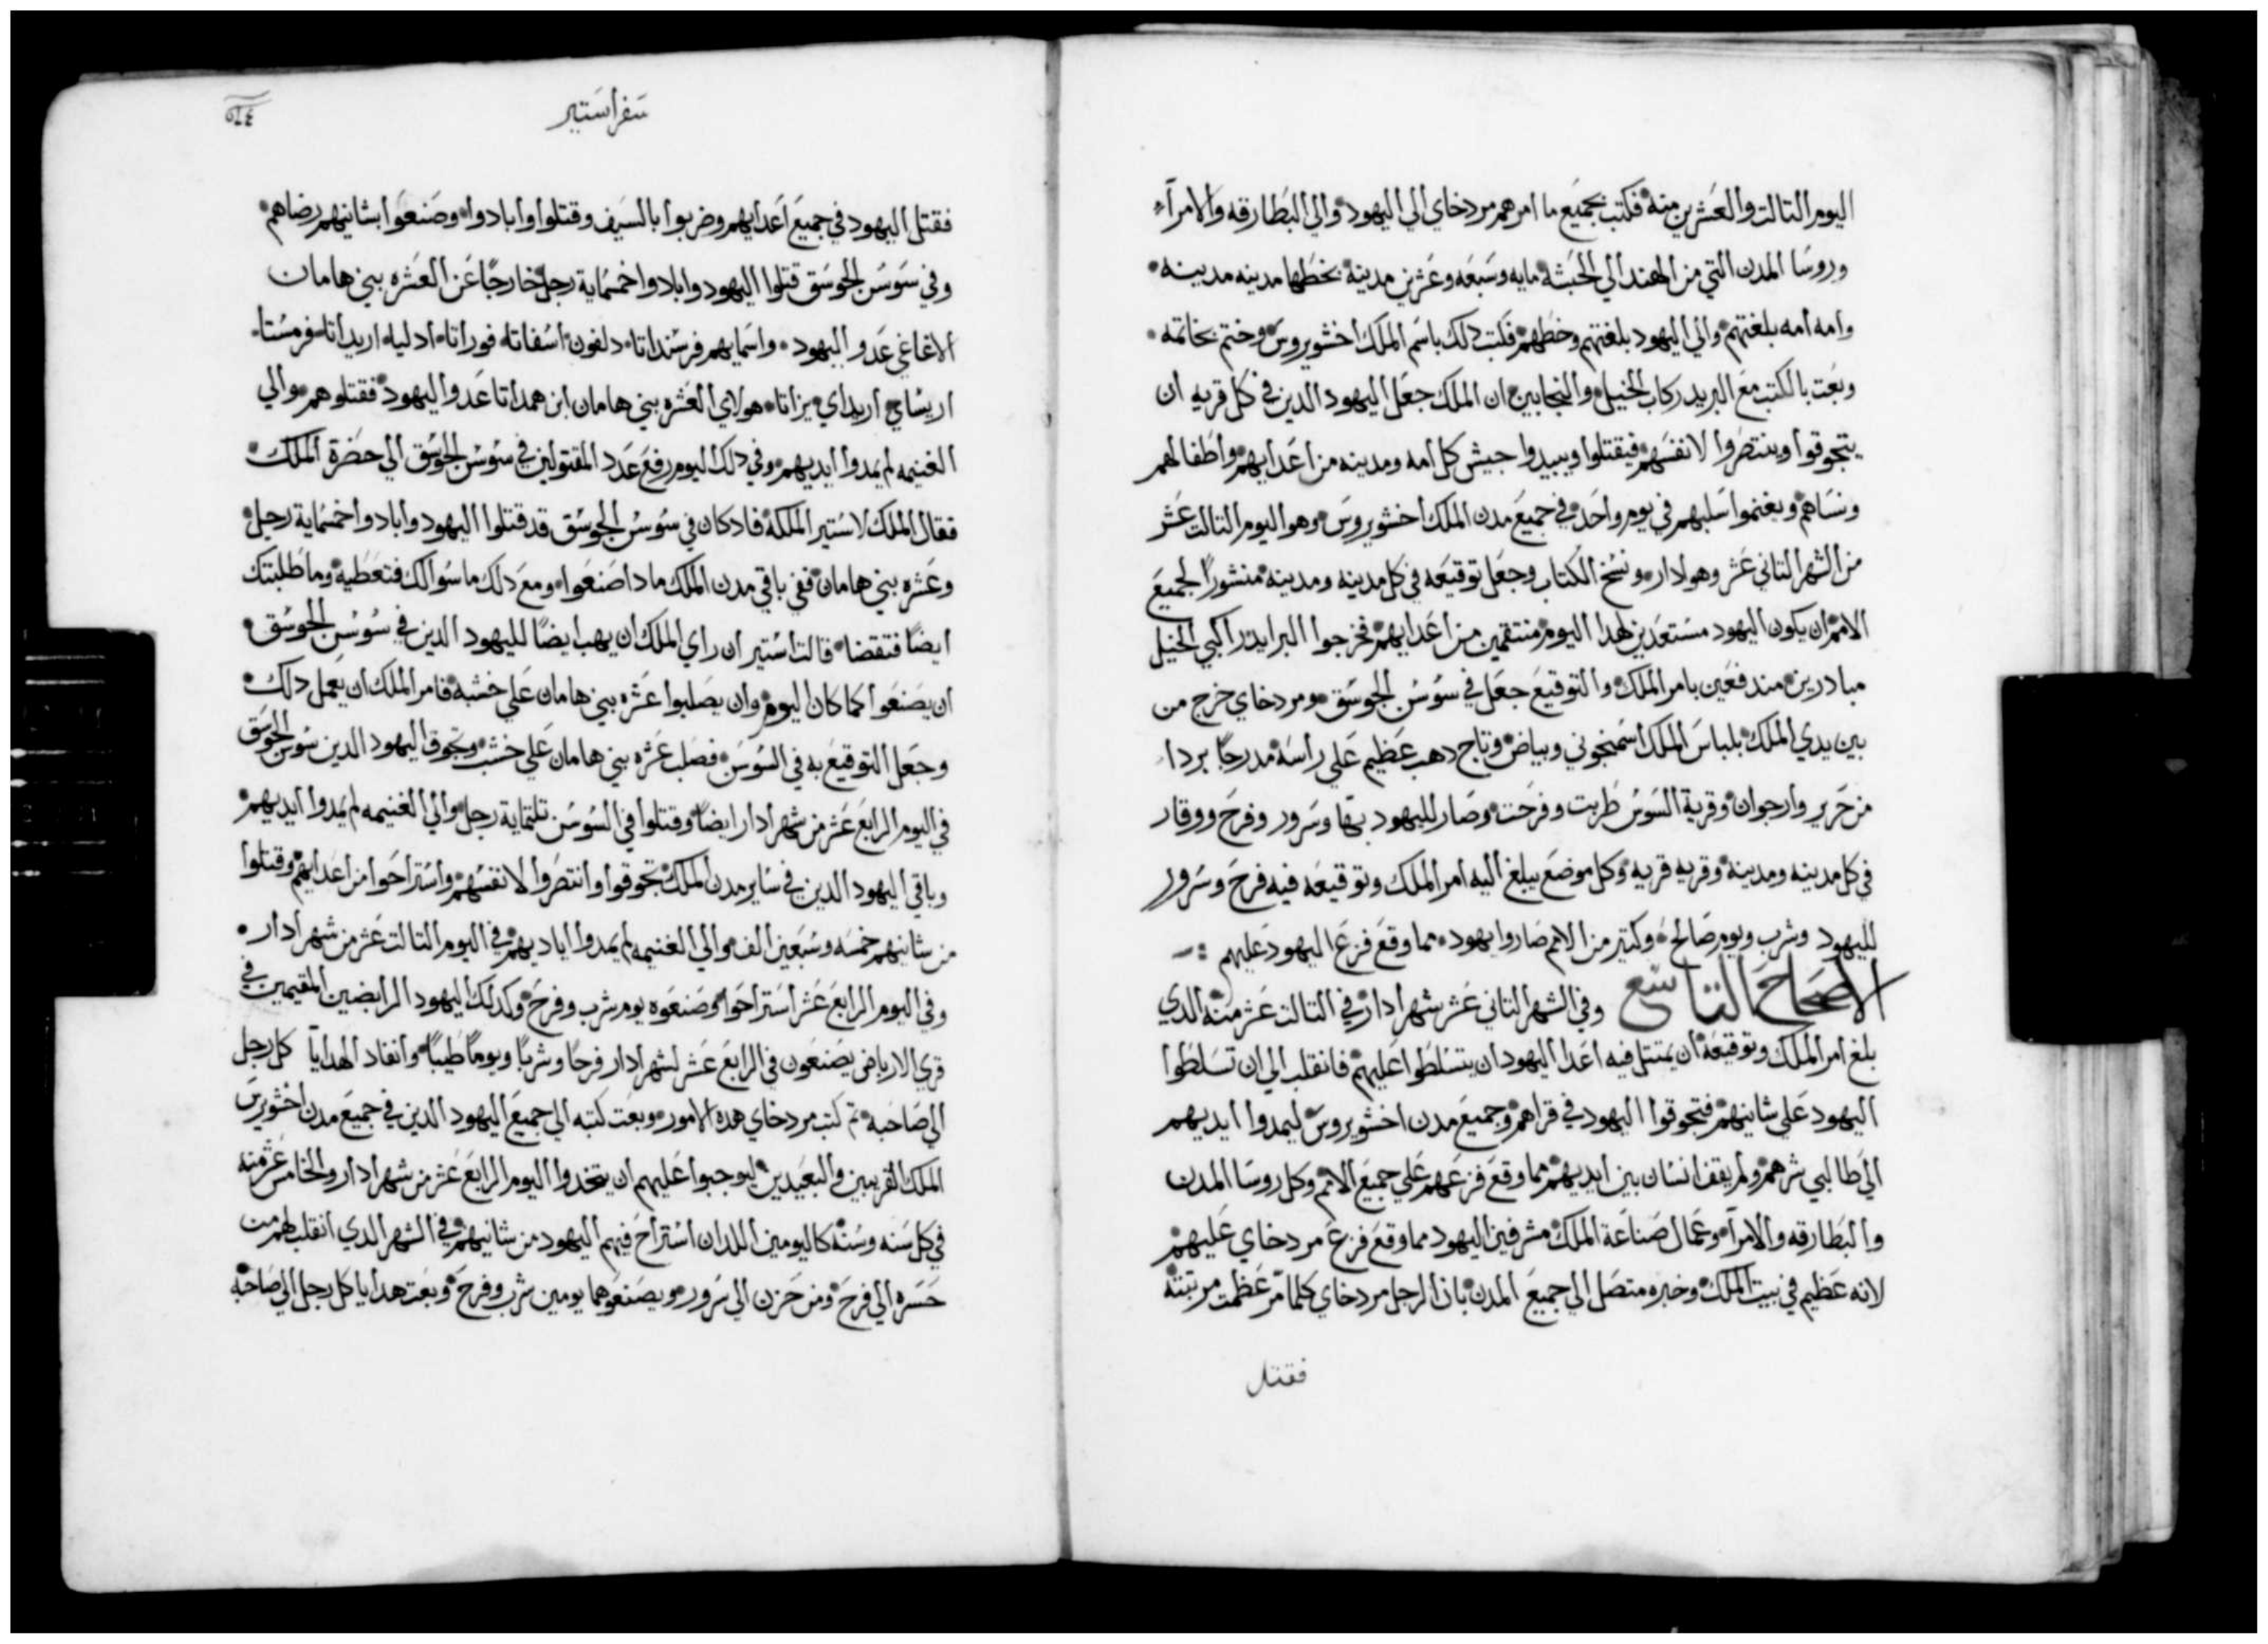 اليوم التالت والعشرين منه فكتب بجميع ما امرهم مردخاي الي اليهود والي البطارقه والامرآء
وروسا المدن التي من الهند الي الحبشه مايه وسبعه وعشرين مدينة بخطها مدينه مدينه
وامه امه بلغتهم والي اليهود بلغتهم وخطهم فكتب دلك باسم الملك اخشويروس وختم بخاتمه
وبعت بالكتب مع البريد ركاب الخيل والنجابين ان الملك جعل اليهود الدين في كل قريه ان
يتجوقوا وينتصروا لانفسهم فيقتلوا ويبيدوا جيش كل امه ومدينه من اعدايهم واطفالهم
ونساهم ويغنموا سلبهم في يوم واحد في جميع مدن الملك اخشويروس وهو اليوم التالت عشر
من الشهر التاني عشر وهو ادار ونسخ الكتاب وجعل توقيعه في كل مدينه ومدينه منشورًا لجميع
الامم ان يكون اليهود مستعدين لهدا اليوم منتقمين من اعدايهم فخرجوا البرايد راكبي الخيل
مبادرين مندفعين بامر الملك والتوقيع جعل في سوسن الجوسق ومردخاي خرج من
بين يدي الملك بلباس الملك اسمنجوني وبياض وتاج دهب عظيم علي راسه مدرجًا بردا
من حرير وارجوان وقرية السوس طربت وفرحت وصار لليهود بها وسرور وفرح ووقار
في كل مدينه ومدينة وقريه قريه وكل موضع يبلغ اليه امر الملك وتوقيعه فيه فرح وسرور
لليهود وشرب ويوم صالح وكتير من الامم صاروا يهود مما وقع فزع اليهود عليهم
الاصحاح التاسع وفي الشهر التاني عشر شهر ادار في التالت عشر منه الدي
بلغ امر الملك وتوقيعه ان يمتتل فيه اعدا اليهود ان يتسلطوا عليهم فانقلب الي ان تسلطوا
اليهود علي شانيهم فتجوقوا اليهود في قراهم وجميع مدن اخشويروس ليمدوا ايديهم
الي طالبي شرهم ولم يقف انسان بين ايديهم مما وقع فزعهم علي جميع الامم وكل روسا المدن
والبطارقه والامرآ وعمال صناعة الملك مشرفين اليهود مما وقع فزع مردخاي عليهم
لانه عظيم في بيت الملك وخبره متصل الي جميع المدن بان الرجل مردخاي كلما مر عظمت مرتبته
فقتل
سفر استير
فقتل اليهود في جميع اعدايهم وضربوا بالسيف وقتلوا وابادوا وصنعوا بشانيهم رضاهم
وفي سوسن الجوسق قتلوا اليهود وابادوا خمسماية رجل خارجًا عن العشره بني هامان
الاغاغي عدو اليهود واسمايهم فرشنداتا دلفون اسفاتا فوراتا ادليا اريداتا فرمستا
اريساي اريداي يزاتا هولاي العشره بني هامان ابن همداتا عدو اليهود فقتلوهم والي
الغنيمه لم يمدوا ايديهم وفي دلك اليوم رفع عدد المقتولين في سوسن الجوسق الي حضرة الملك
فقال الملك لاستير الملكة فادكان في سوسن الجوسق قد قتلوا اليهود وابادوا خمسماية رجل
وعشره بني هامان ففي باقي مدن الملك مادا صنعوا ومع دلك ما سوالك فتعطيه وما طلبتك
ايضًا فتقضا قالت استير ان راي الملك ان يهب ايضًا لليهود الدين في سوسن الجوسق
ان يصنعوا كما كان اليوم وان يصلبوا عشره بني هامان علي خشبه فامر الملك ان يعمل دلك
وجعل التوقيع به في السوسن فصلب عشره بني هامان علي خشب وتجوق اليهود الدين سوسن الجوسق
في اليوم الرابع عشر من شهر ادار ايضًا وقتلوا في السوسن تلتماية رجل والي الغنيمه لم يمدوا ايديهم
وباقي اليهود الدين في ساير مدن الملك تجوقوا وانتصروا لانفسهم واستراحوا من اعدايهم وقتلوا
من شانيهم خمسه وسبعين الف والي الغنيمه لم يمدوا اياديهم في اليوم التالت عشر من شهر ادار
وفي اليوم الرابع عشر استراحوا وصنعوه يوم شرب وفرح وكدلك اليهود الرابضين المقيمين في
قري الارباض يصنعون في الرابع عشر لشهر ادار فرحًا وشربًا ويومًا طيبًا وانفاد الهدايآ كل رجل
الي صاحبه تم كتب مردخاي هده الامور وبعت كتبه الي جميع اليهود الدين في جميع مدن اخشويرس
الملك القريبين والبعيدين ليوجبوا عليهم ان يتخدوا اليوم الرابع عشر من شهر ادار والخامس عشر منه
في كل سنه وسنة كاليومين اللدان استراح فيهم اليهود من شانيهم في الشهر الدي انقلب لهم من
حسره الي فرح ومن حزن الي سرور ويصنعوهما يومين شرب وفرح وبعت هدايا كل رجل الي صاحبه